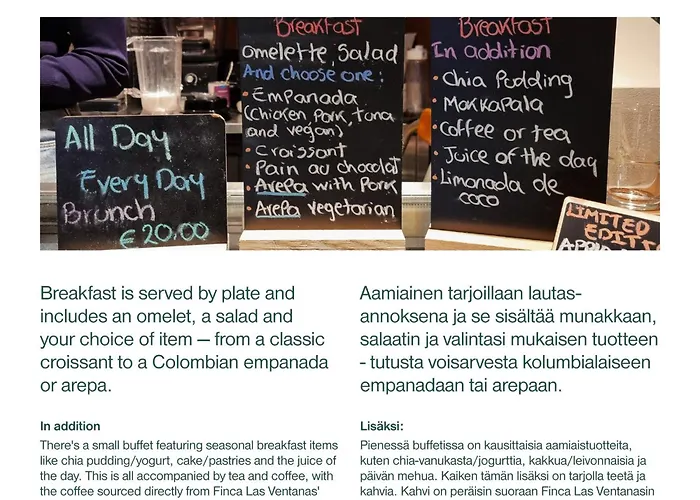 All Day
Every Day
Brunch
€ 20,00
Breakfast
Omelette, Salad
And choose one:
• Empanada
(Chicken, Pork, Tuna
and vegan)
• Croissant
• Pain au chocolat
• Arepa with Pork
• Arepa vegetarian
Breakfast
In addition
• Chia Pudding
• Mokkapala
• Coffee or tea
• Juice of the day
• Limonada de
coco
LIMITED
Breakfast is served by plate and
includes an omelet, a salad and
your choice of item — from a classic
croissant to a Colombian empanada
or arepa.
In addition
There's a small buffet featuring seasonal breakfast items
like chia pudding/yogurt, cake/pastries and the juice of
the day. This is all accompanied by tea and coffee, with
the coffee sourced directly from Finca Las Ventanas'
Aamiainen tarjoillaan lautas-
annoksena ja se sisältää munakkaan,
salaatin ja valintasi mukaisen tuotteen
- tutusta voisarvesta kolumbialaiseen
empanadaan tai arepaan.
Lisäksi:
Pienessä buffetissa on kausittaisia aamiaistuotteita,
kuten chia-vanukasta/jogurttia, kakkua/leivonnaisia ja
päivän mehua. Kaiken tämän lisäksi on tarjolla teetä ja
kahvia. Kahvi on peräisin suoraan Finca Las Ventanasin